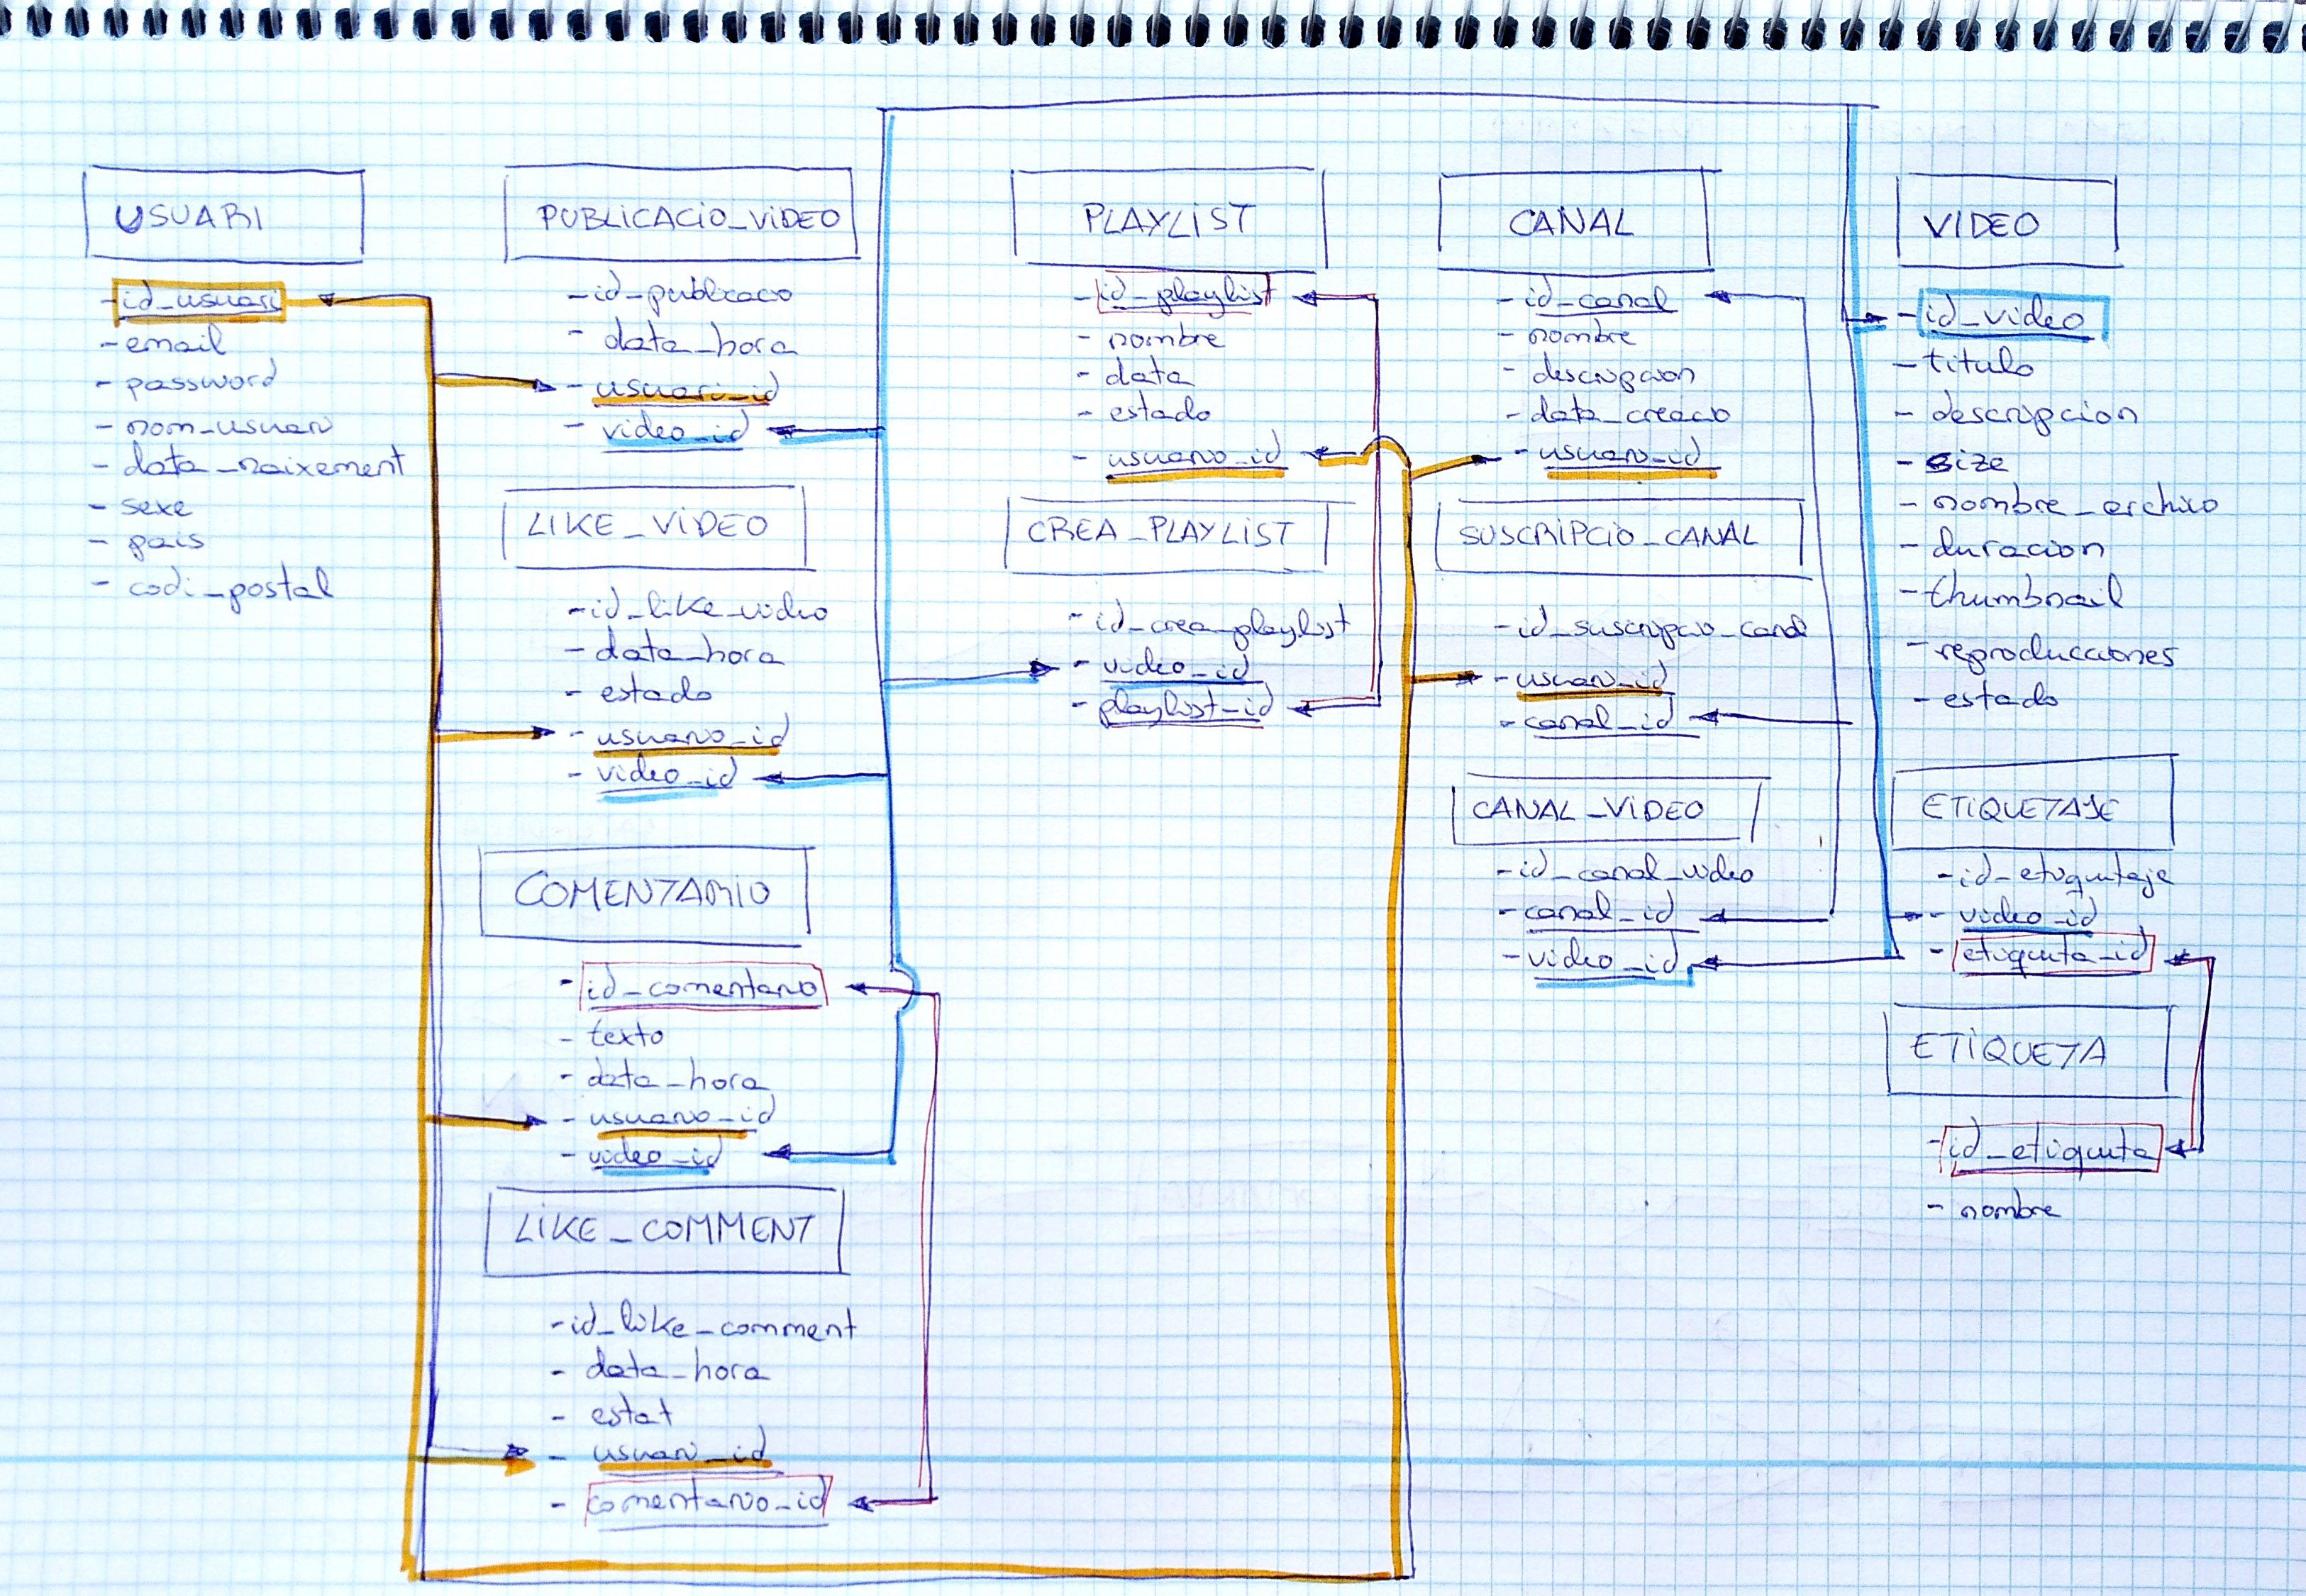 USUARI
- id_usuari
- email
- password
- nom_usuari
- data_naixement
- sexe
- pais
- codi_postal
PUBLICACIO_VIDEO
- id_publicacio
- data_hora
- usuari_id
- video_id
LIKE_VIDEO
- id_like_video
- data_hora
- estado
- usuario_id
- video_id
COMENTARIO
- id_comentario
- texto
- data_hora
- usuario_id
- video_id
LIKE_COMMENT
- id_like_comment
- data_hora
- estat
- usuari_id
- comentario_id
PLAYLIST
- id_playlist
- nombre
- data
- estado
- usuario_id
CREA_PLAYLIST
- id_crea_playlist
- video_id
- playlist_id
CANAL
- id_canal
- nombre
- descripcion
- data_creacio
- usuario_id
SUSCRIPCIO_CANAL
- id_suscripcio_canal
- usuario_id
- canal_id
CANAL_VIDEO
- id_canal_video
- canal_id
- video_id
VIDEO
- id_video
- titulo
- descripcion
- size
- nombre_archivo
- duracion
- thumbnail
- reproducciones
- estado
ETIQUETAJE
- id_etiquetaje
- video_id
- etiqueta_id
ETIQUETA
- id_etiqueta
- nombre